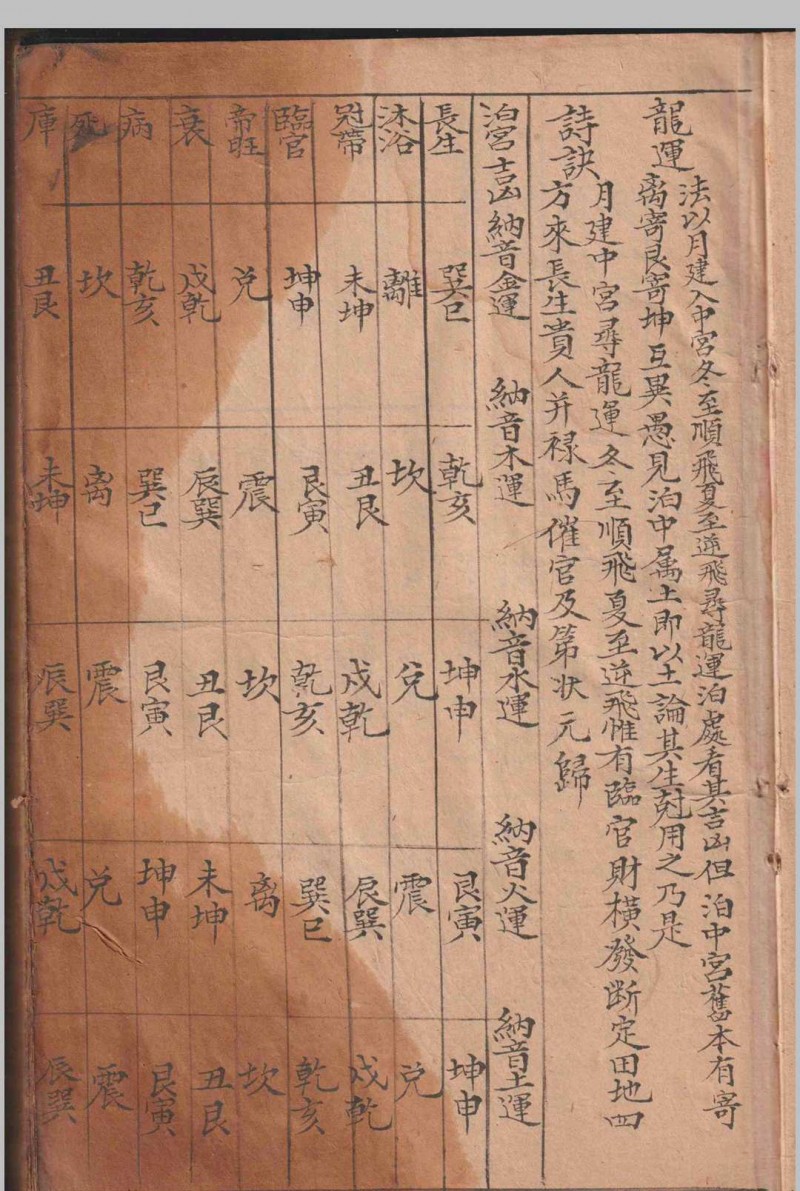 龍運
法以月建入中宮冬至順飛夏至逆飛尋龍運泊處看其吉凶但泊中宮舊本有寄
离寄艮寄坤互異愚見泊中属土即以土論其生尅用之乃是
詩訣
月建中宮尋龍運冬至順飛夏至逆飛惟有臨官財横發断定田地四
方來長生貴人并禄馬催官及第状元歸
泊宮吉凶 納音金運 納音木運 納音水運 納音火運 納音土運
長生 巽巳 乾亥 坤申 艮寅 坤申
沐浴 離 坎 兌 震 兌
冠帶 未坤 丑艮 戍乾 辰巽 戍乾
臨官 坤申 艮寅 乾亥 巽巳 乾亥
帝旺 兌 震 坎 离 坎
衰 戍乾 辰巽 丑艮 未坤 丑艮
病 乾亥 巽巳 艮寅 坤申 艮寅
死 坎 离 震 兌 震
庫 丑艮 未坤 辰巽 戍乾 辰巽